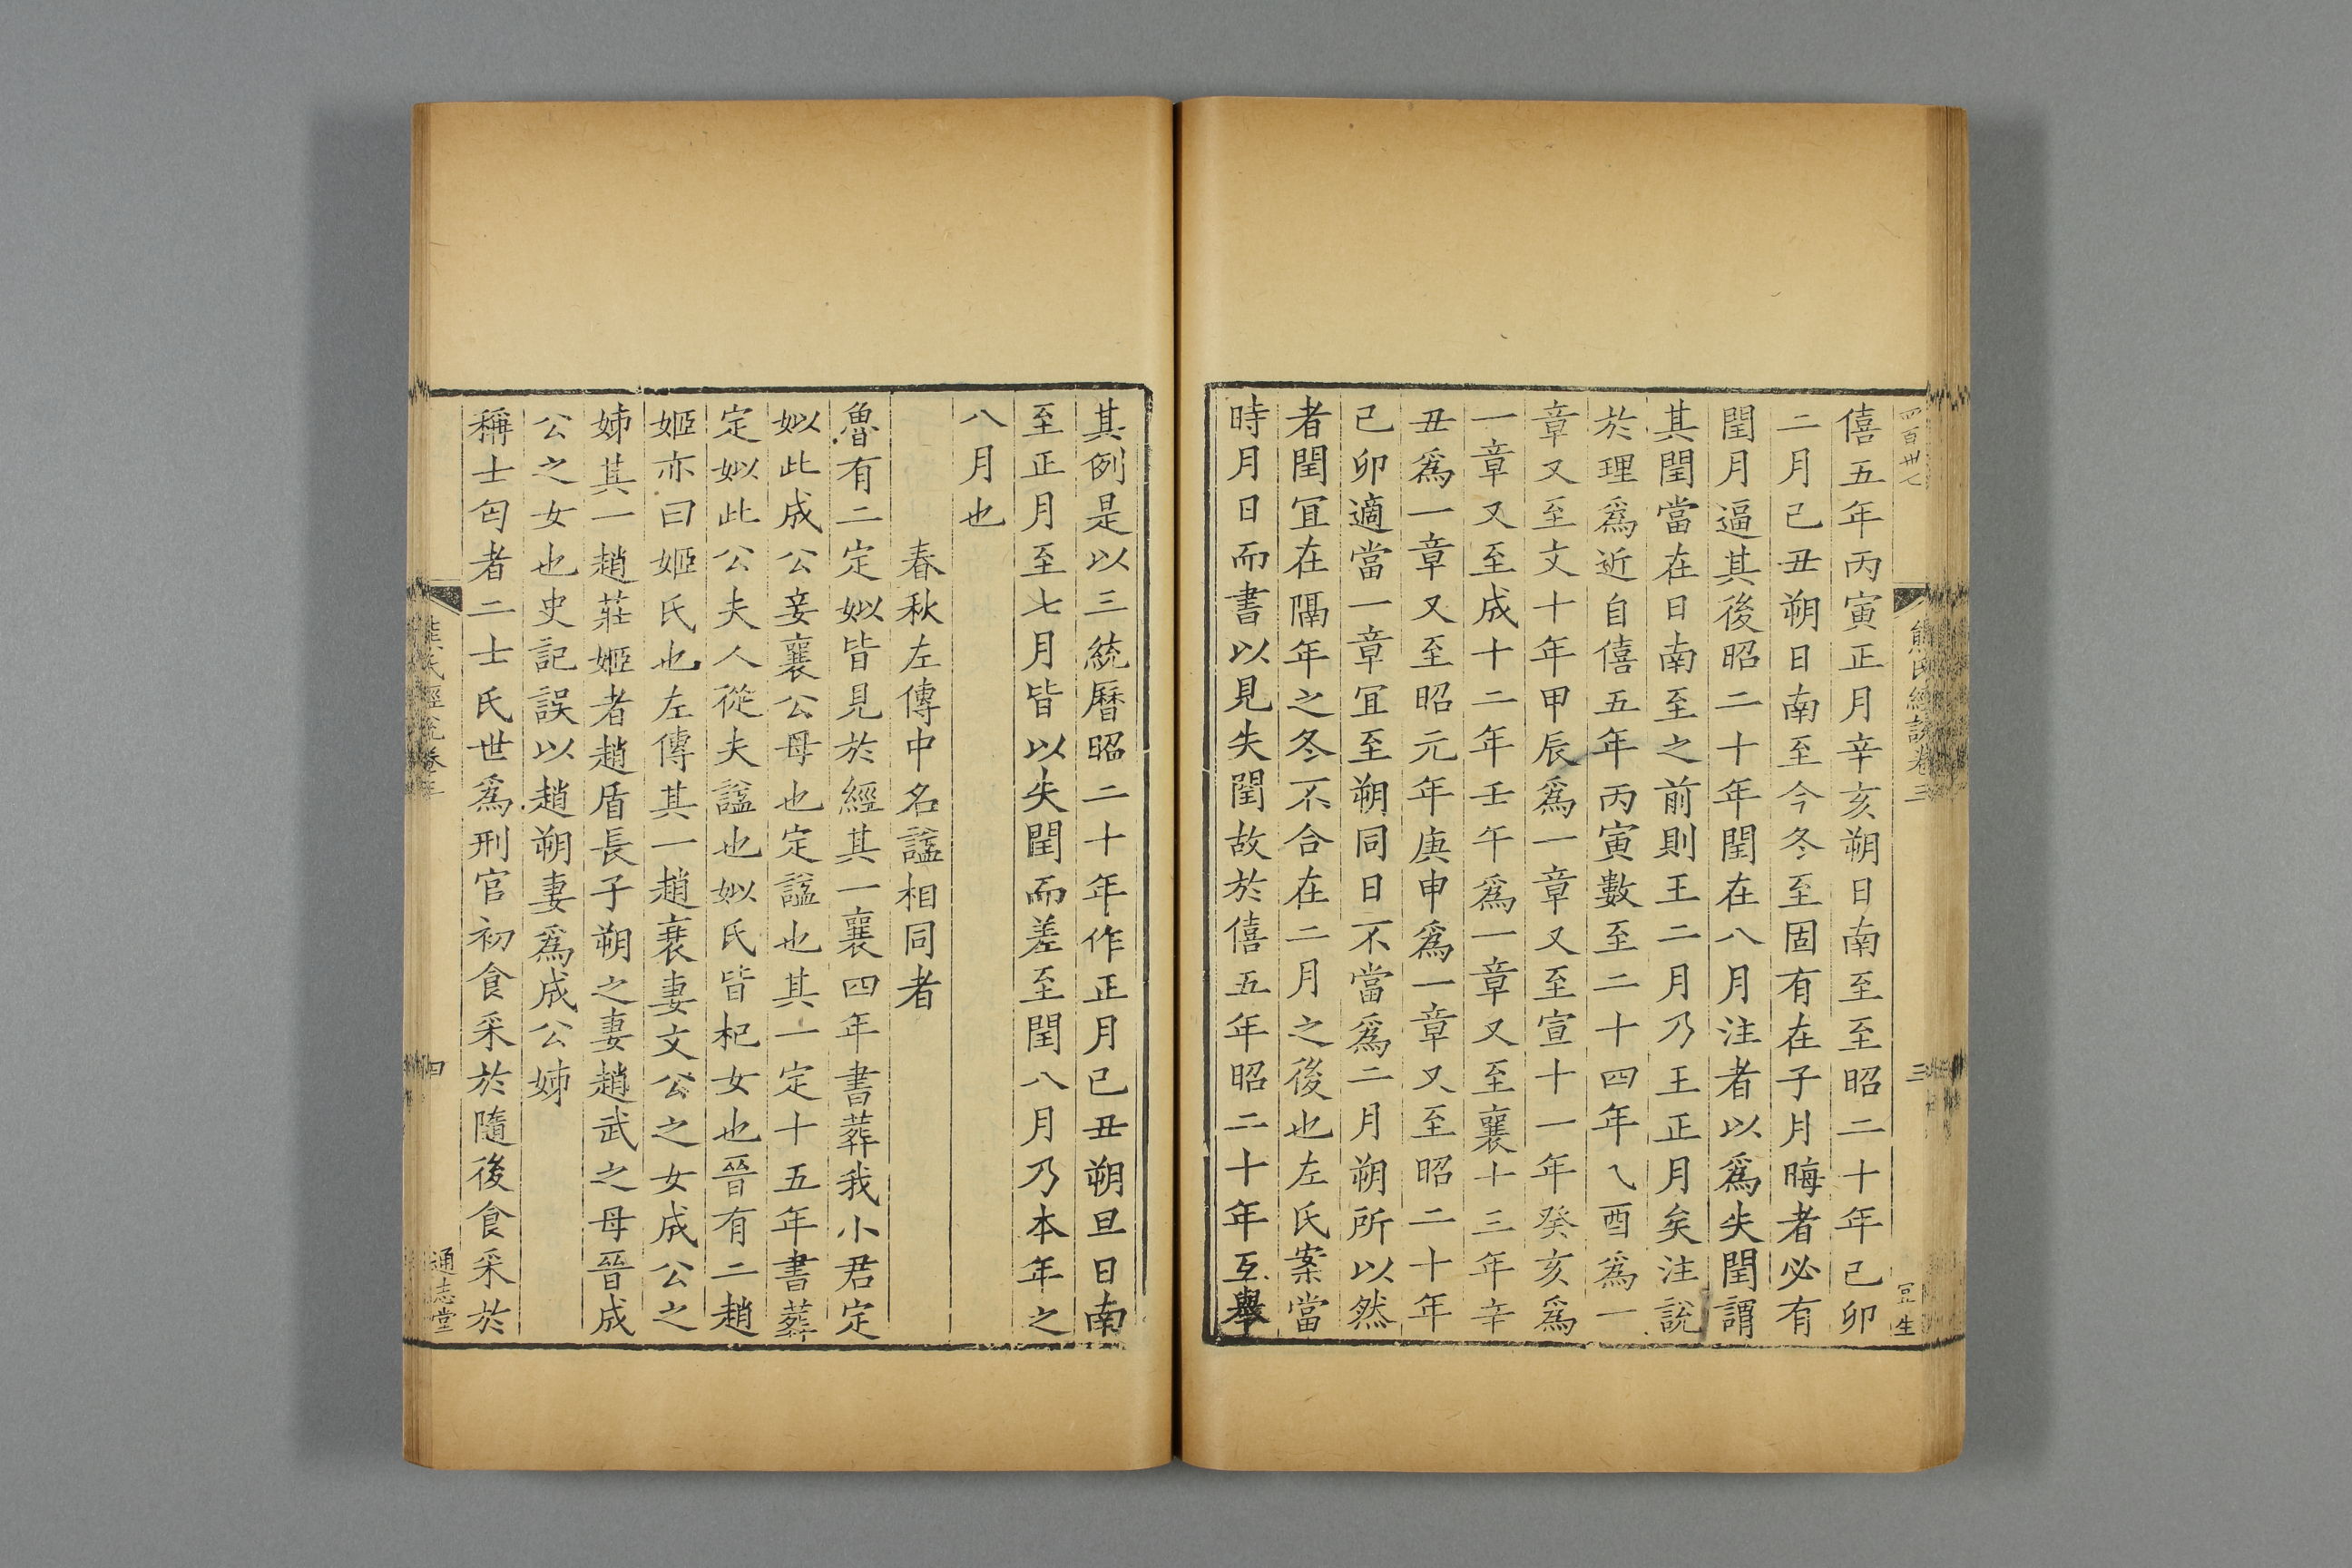 四百卅七
熊氏經說卷三
三
僖五年丙寅正月辛亥朔日南至至昭二十年己卯
二月己丑朔日南至今冬至固有在子月晦者必有
閏月逼其後昭二十年閏在八月注者以爲失閏謂
其閏當在日南至之前則王二月乃王正月矣注說
於理爲近自僖五年丙寅數至二十四年乀酉爲一
章又至文十年甲辰爲一章又至宣十一年癸亥爲
一章又至成十二年壬午爲一章又至襄十三年辛
丑爲一章又至昭元年庚申爲一章又至昭二十年
己卯適當一章冝至朔同日不當爲二月朔所以然
者閏冝在隔年之冬不合在二月之後也左氏案當
時月日而書以見失閏故於僖五年昭二十年互舉
其例是以三統曆昭二十年作正月己丑朔旦日南
至正月至七月皆以失閏而差至閏八月乃本年之
八月也
春秋左傳中名諡相同者
魯有二定姒皆見於經其一襄四年書葬我小君定
姒此成公妾襄公母也定諡也其一定十五年書葬
定姒此公夫人從夫諡也姒氏皆杞女也晉有二趙
姬亦曰姬氏也左傳其一趙衰妻文公之女成公之
姊其一趙莊姬者趙盾長子朔之妻趙武之母晉成
公之女也史記誤以趙朔妻爲成公姊
稱士匄者二士氏世爲刑官初食采於隨後食采於
四
通志堂